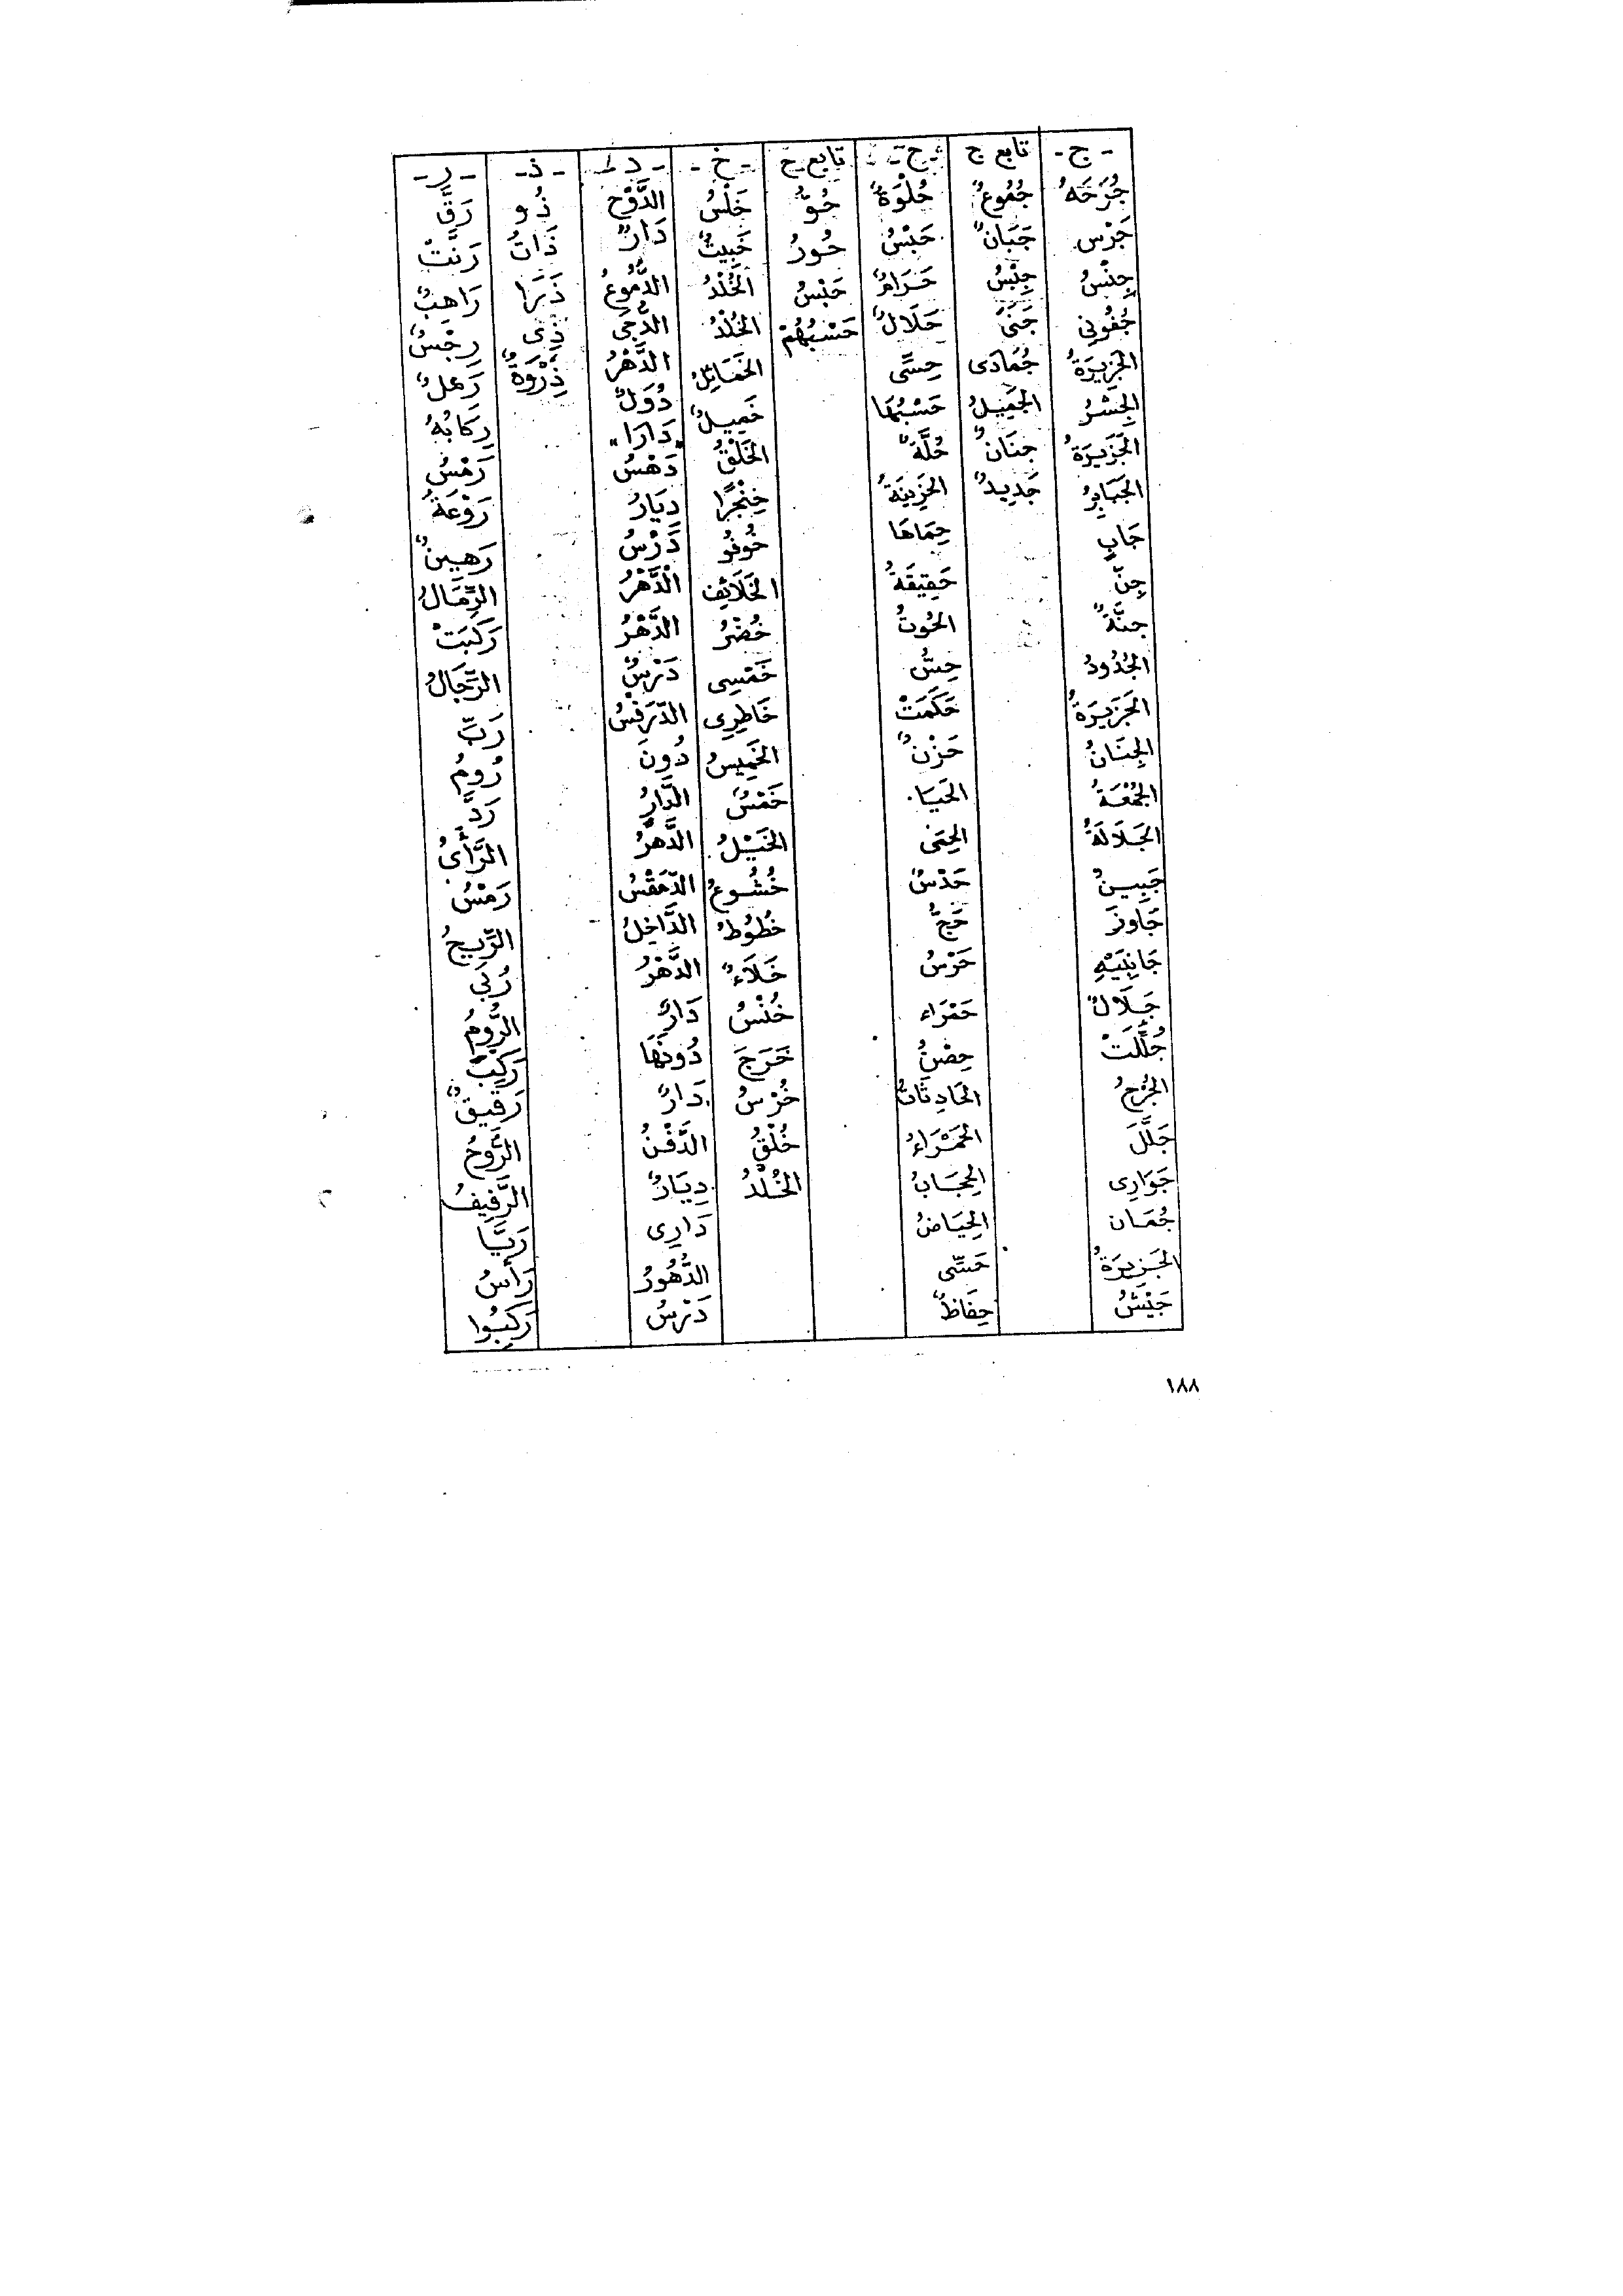 - ج - تابع ج - ح - تابع ح - خ - - د - - ذ - - ر -
جُرْحَهُ جُمُوعٌ حُلْوَةٌ حُوٌّ خَلْسُ الدَّوْحِ ذُو رَقَّ
جَرْسِ جَبَانٌ حَبْسُ حُورُ خَبِيثٌ دَارٌ ذَاتُ رَنَّتْ
جِنْسُ جِنْسُ حَرَامٌ حَبْسُ الخُلْدُ الدُّمُوعُ ذَرَا رَاهِبٌ
جُفُونِى جَنَى حَلَالٌ حَسْبُهُمْ الخُلْدُ الدُّجَى ذِى رِجْسٌ
الجَزِيرَةُ جُمَادَى حِسَّى الخَمَائِلُ الدَّهْرُ ذِرْوَةٌ رَعْلٌ
الجِسْرُ الجَمِيلُ حَسْبُهَا خَمِيلٌ دُوَلٌ رِكَابُهُ
الجَزِيرَةُ جِنَانٌ حُلَّةٌ الخَلْقُ "دَارَا" رَمْسُ
الجَبَابِرُ جَدِيدٌ الحَزِينَةُ خِنْجَرًا دَهْسُ رَوْعَةٌ
جَابٍ حِمَاهَا خُوفُو دِيَارُ رَهِينٌ
جِنّ حَقِيقَةُ الخَلَائِفِ دَرْسُ الرِّمَالُ
جِنَّةٌ الحُوتُ خُضْرُ الدَّهْرُ رَكِبَتْ
الجُدُودُ حِسُّ خَمْسِى الدَّهْرُ الرِّجَالُ
الجَزِيرَةُ حَكَمَتْ خَاطِرِى دَرْسٌ رَبِّ
الجِنَانُ حَزْنٌ الخَمِيسُ الدِّرَفْسُ رُومُ
الجُمْعَةُ الحَيَا خَمْسُ دُونَ رَدَّ
الجَلَالَةُ الحِمَى الخَيْلُ الدَّارُ الرَّأْىُ
جَبِينٌ حَدْسٌ خُشُوعٌ الدَّهْرُ رَمْسُ
جَاوَزَ حَجَّ خُطُوطُ الدِّمَقْسُ الرِّيحُ
جَانِبَيْهِ حَرْسُ خَلَاءٌ الدَّاخِلُ رُبَى
جَلَالٌ حَمْرَاء خُنْسُ الدَّهْرُ الرُّومُ
جُلِّلَتْ حِصْنُ خَرَجَ دَارٌ رَكِبَ
الجُرْحُ الحَادِثَاتُ خُرْسُ دُونَهَا رَقِيقٌ
جَلَّلَ الحَمْرَاءُ خُلْقُ دَارٌ الرُّوحُ
جَوَارِى الحِجَابُ الخُلْدُ الدَّفْنُ الرَّفِيفُ
جُمَان الحِيَاضُ دِيَارٌ رَيَّا
الجَزِيرَةُ حِسِّى دَارِى رَأْسُ
جَيْشُ حِفَاظٌ الدُّهُورُ رَكِبُوا
دَرْسُ
١٨٨